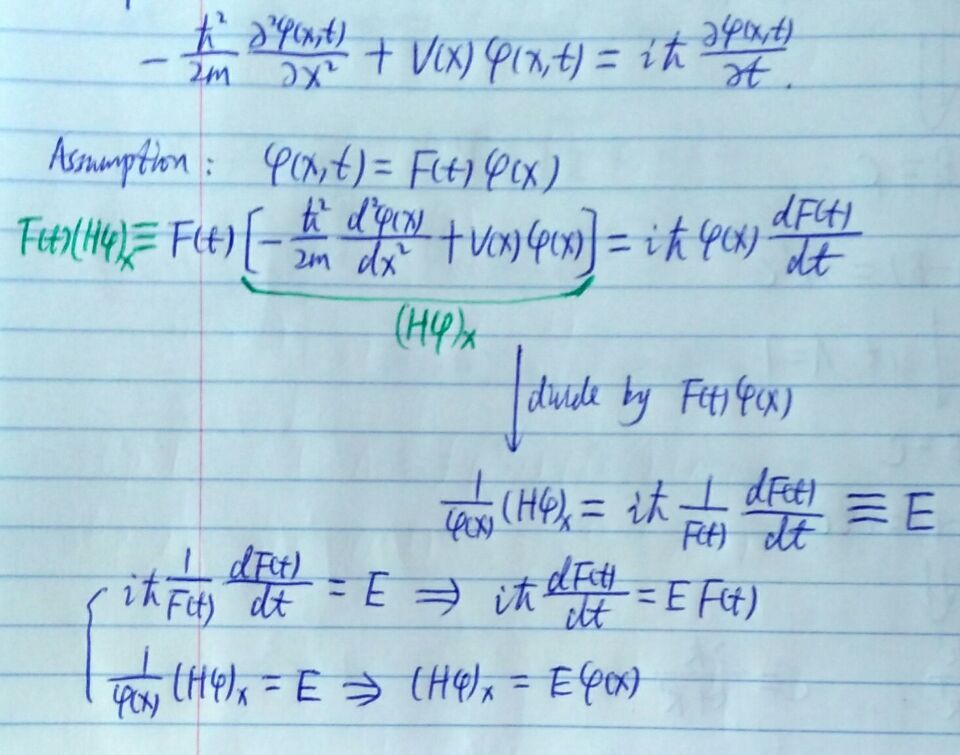 -ħ²/2m ∂²φ(x,t)/∂x² + V(x) φ(x,t) = iħ ∂φ(x,t)/∂t.
Assumption: φ(x,t) = F(t) φ(x)
F(t)(Hφ)ₓ ≡ F(t) [-ħ²/2m d²φ(x)/dx² + V(x) φ(x)] = iħ φ(x) dF(t)/dt
(Hφ)ₓ
divide by F(t) φ(x)
1/φ(x) (Hφ)ₓ = iħ 1/F(t) dF(t)/dt ≡ E
iħ 1/F(t) dF(t)/dt = E ⇒ iħ dF(t)/dt = E F(t)
1/φ(x) (Hφ)ₓ = E ⇒ (Hφ)ₓ = E φ(x)